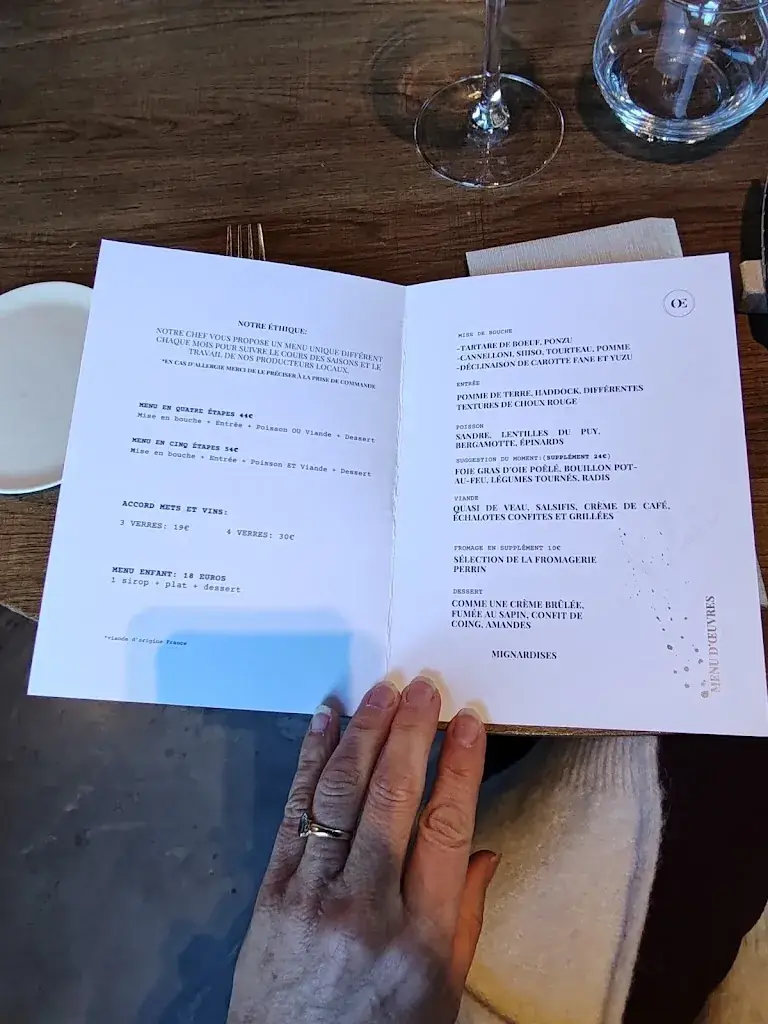 NOTRE ÉTHIQUE:
NOTRE CHEF VOUS PROPOSE UN MENU UNIQUE DIFFÉRENT
CHAQUE MOIS POUR SUIVRE LE COURS DES SAISONS ET LE
TRAVAIL DE NOS PRODUCTEURS LOCAUX.
*EN CAS D'ALLERGIE MERCI DE LE PRÉCISER À LA PRISE DE COMMANDE
MENU EN QUATRE ÉTAPES 44€
Mise en bouche + Entrée + Poisson OU Viande + Dessert
MENU EN CINQ ÉTAPES 54€
Mise en bouche + Entrée + Poisson ET Viande + Dessert
ACCORD METS ET VINS:
3 VERRES: 19€ 4 VERRES: 30€
MENU ENFANT: 18 EUROS
1 sirop + plat + dessert
*viande d'origine France
Œ
MISE DE BOUCHE
-TARTARE DE BOEUF, PONZU
-CANNELLONI, SHISO, TOURTEAU, POMME
-DÉCLINAISON DE CAROTTE FANE ET YUZU
ENTRÉE
POMME DE TERRE, HADDOCK, DIFFÉRENTES
TEXTURES DE CHOUX ROUGE
POISSON
SANDRE, LENTILLES DU PUY,
BERGAMOTTE, ÉPINARDS
SUGGESTION DU MOMENT:(SUPPLÉMENT 24€)
FOIE GRAS D'OIE POÊLÉ, BOUILLON POT-
AU-FEU, LÉGUMES TOURNÉS, RADIS
VIANDE
QUASI DE VEAU, SALSIFIS, CRÈME DE CAFÉ,
ÉCHALOTES CONFITES ET GRILLÉES
FROMAGE EN SUPPLÉMENT 10€
SÉLECTION DE LA FROMAGERIE
PERRIN
DESSERT
COMME UNE CRÈME BRÛLÉE,
FUMÉE AU SAPIN, CONFIT DE
COING, AMANDES
MIGNARDISES
MENU D'ŒUVRES